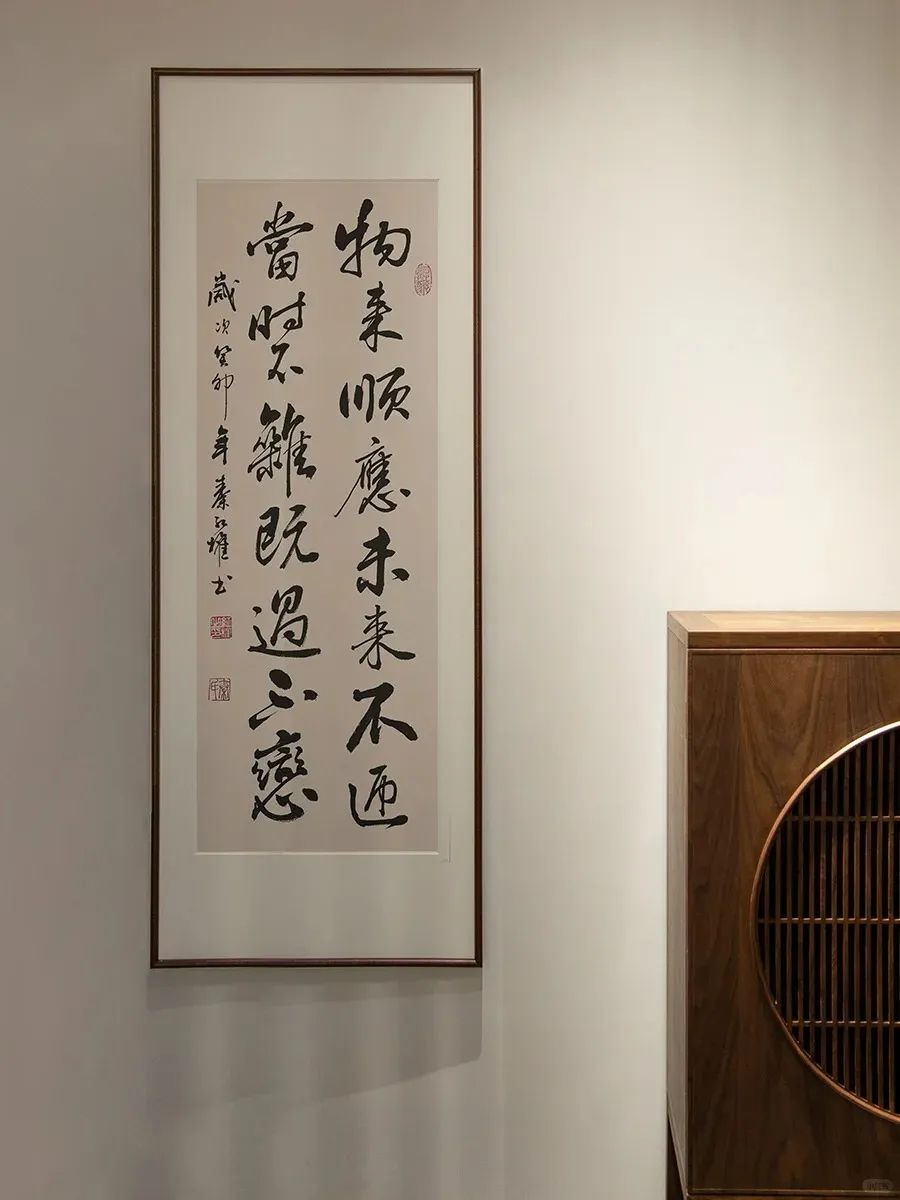 物来順應未来不迎
當时不雜既過不戀
歲次癸卯年秦书